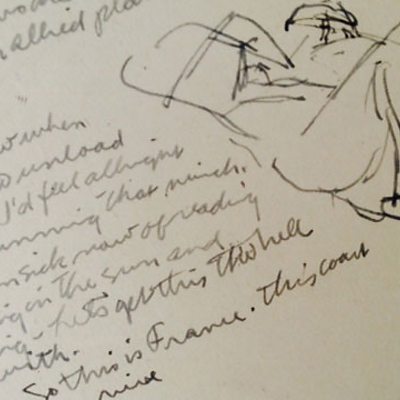 allied pla
when
unload
I'd feel allright
that much.
sick now of reading
in the sun and
let's get this the hell
with.
So this is France. This coast
nice